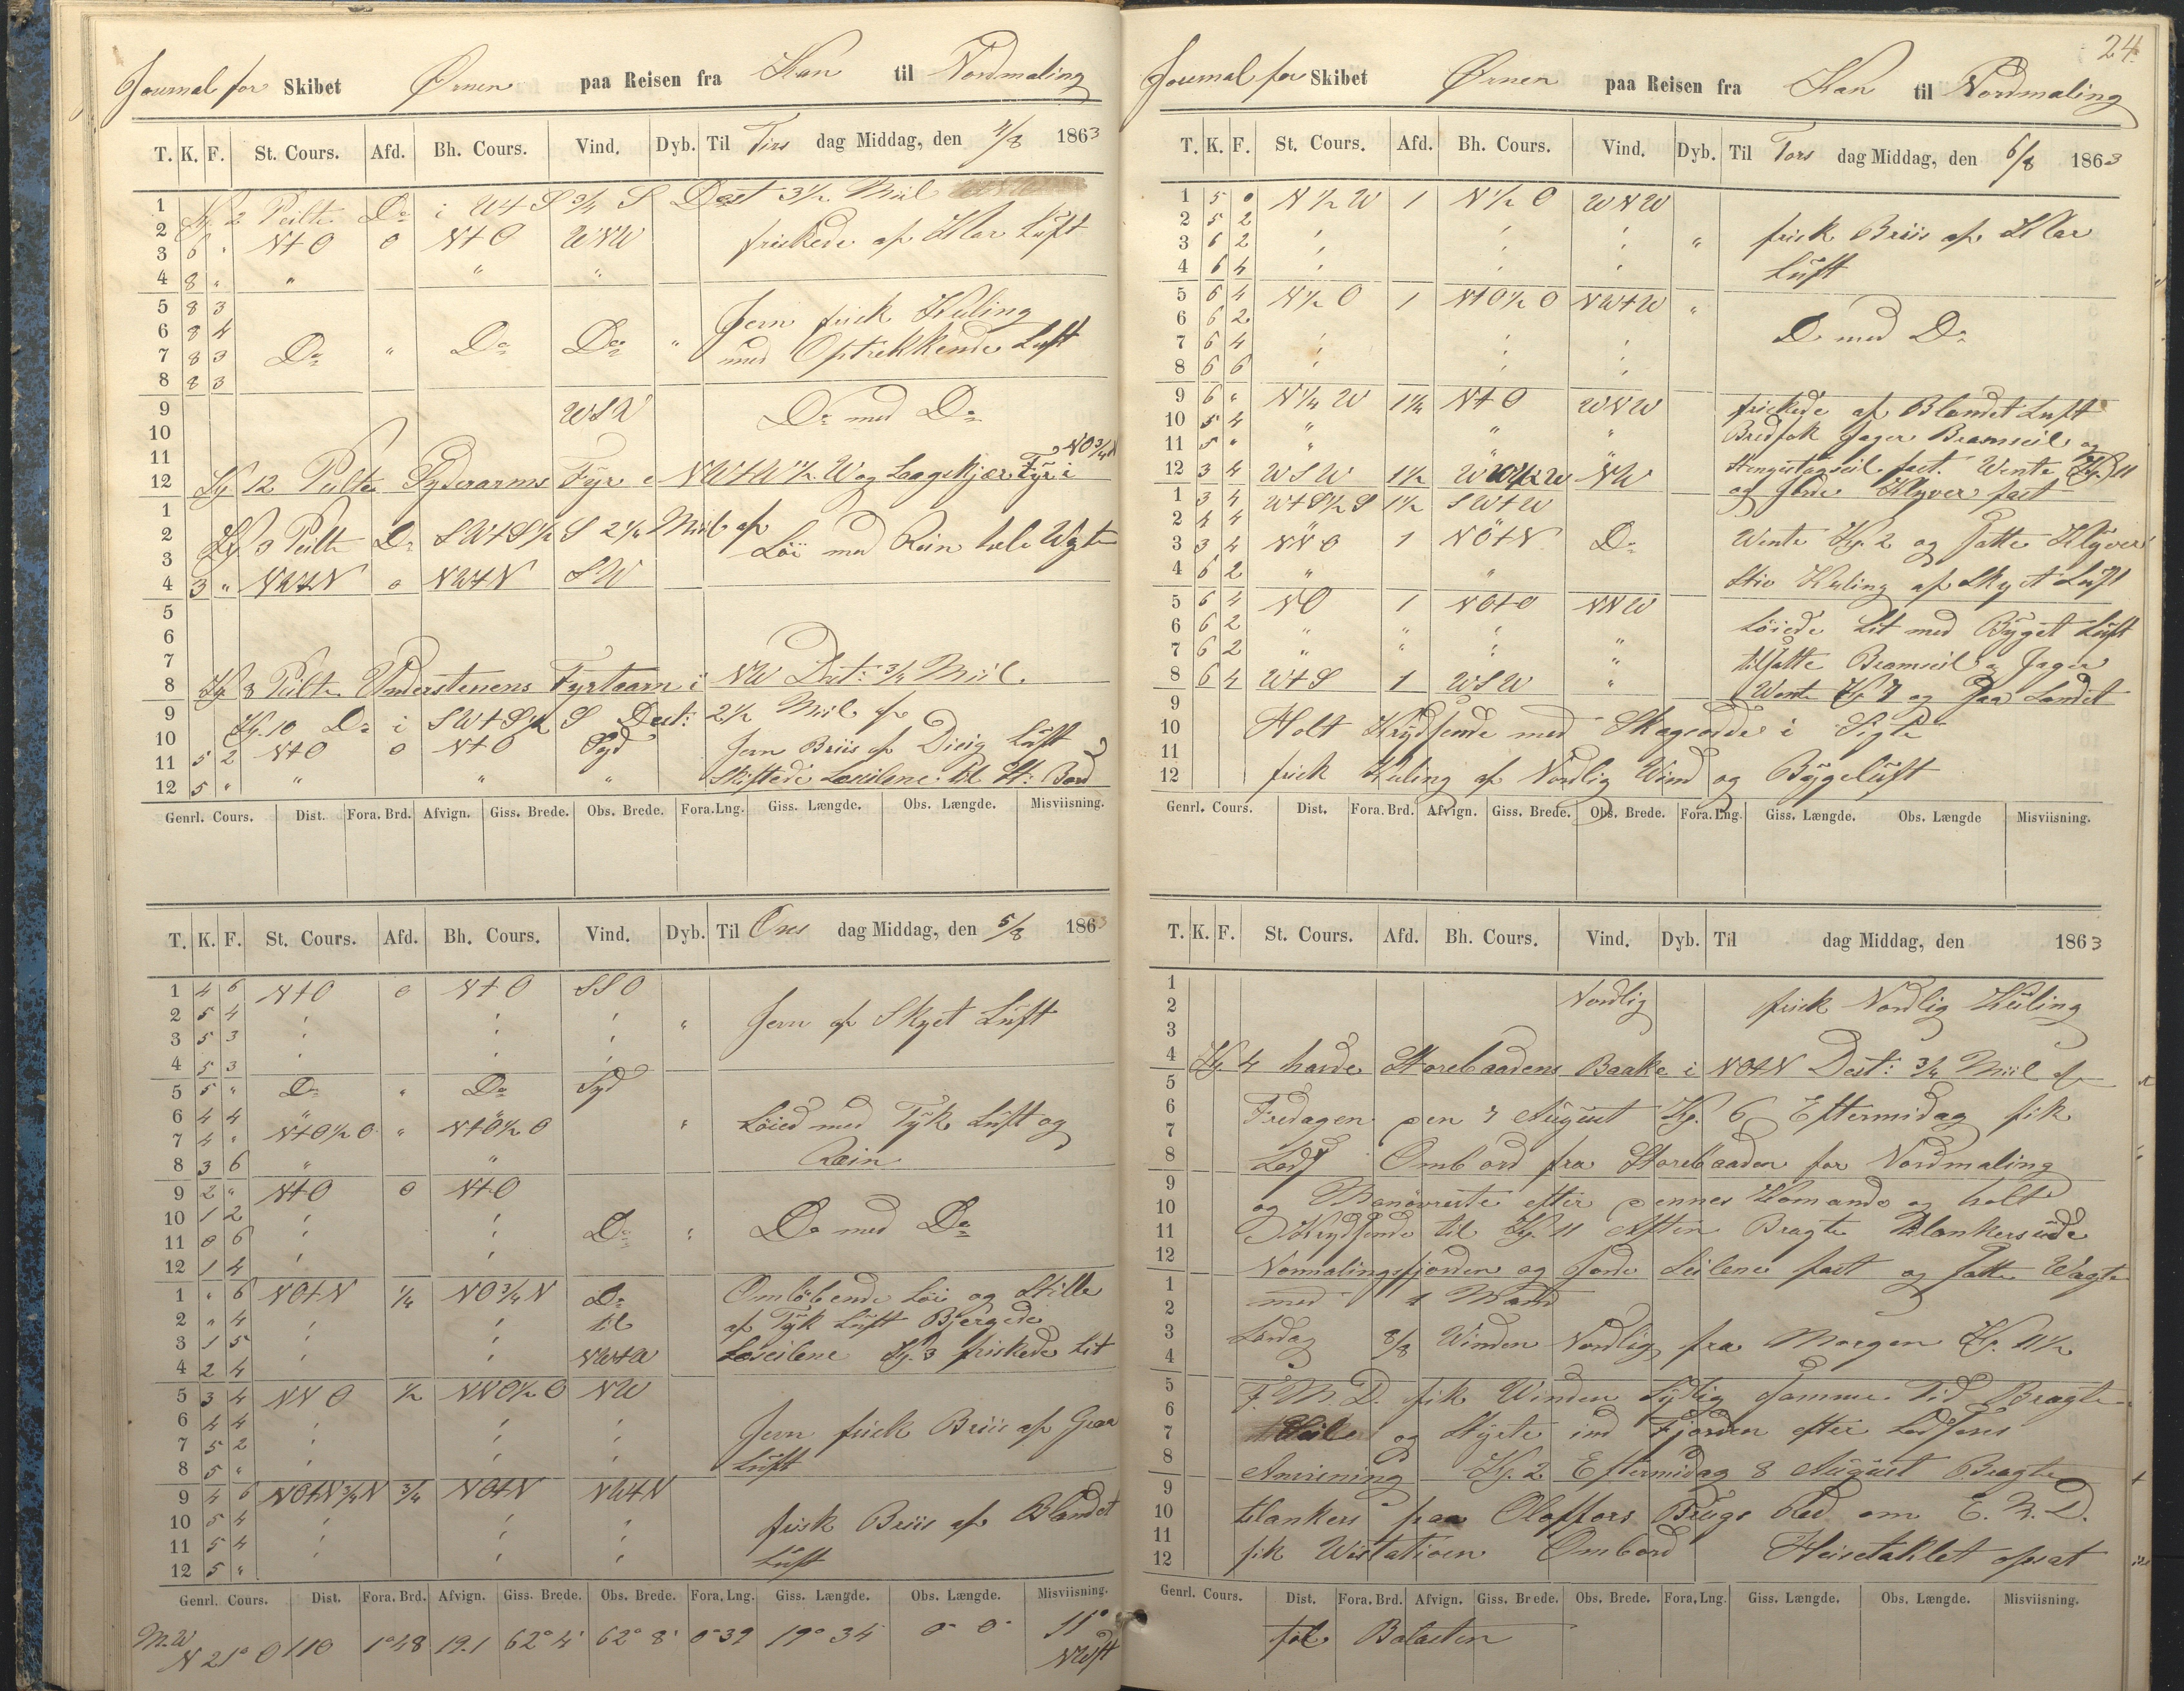 Journal for Skibet Ørnen paa Reisen fra Kan til Nordmaling
T. K. F. St. Cours. Afd. Bh. Cours. Vind. Dyb. Til Tirs dag Middag, den 4/8 1863
1 Kl 2 Peilte Do i W+S 3/4 S Dest 3 1/2 Miil
2
3 6 " N+O 0 N+O WNW friskede af Klar Luft
4 8 " " " "
5 8 3 Jevn frisk Kuling
6 8 4
7 8 3 Do " Do Do " med Optrækkende Luft
8 8 3
9 WSW Do med Do
10
11 NO 3/4 N
12 Kl 12 Peilte Syderarms Fyr i NW+W 1/2 W og Laagskjær Fyr i
1
2 Kl 3 Peilte Do SW+S 1/2 S 2 1/4 Miil af
3 Löi med Rein hele Wagten
4 3 " NW+N 0 NW+N SW
5
6
7
8 Kl 8 Peilte Understenens Fyrtaarn i NW Dist: 3/4 Miil.
9 Kl. 10 Do i SW+S 1/2 S Dest: 2 1/2 Miil af
10
11 5 2 N+O 0 N+O Syd Jevn Briis af Disig Luft
12 5 " " " " Skiftede Læseilene til St: Bord
Genrl. Cours. Dist. Fora. Brd. Afvign. Giss. Brede. Obs. Brede. Fora. Lng. Giss. Længde. Obs. Længde. Misviisning.
T. K. F. St. Cours. Afd. Bh. Cours. Vind. Dyb. Til Ons dag Middag, den 5/8 1863
1 4 6 N+O 0 N+O SSO
2 5 4 " Jevn af Skyet Luft
3 5 3
4 5 3
5 5 " Do " Do Syd
6 4 4
7 4 " N+O 1/2 O " N+O 1/2 O " Löied med Tyk Luft og
8 3 6 " " Rein
9 2 " N+O 0 N+O
10 1 2
11 0 6 Do " Do med Do
12 1 4
1 " 6 NO+N 1/4 NO 3/4 N Do Omlöbende Löi og Stille
2 " 4 til af Tyk Luft Bjergede
3 1 5 NW+W Læseilene Kl. 3 friskede Lit
4 2 4
5 3 4 NNO 1/2 NNO 1/2 O NW
6 4 4 Jevn frisk Briis af Graa
7 5 2
8 5 " Luft
9 4 6 NO+N 3/4 N 3/4 NO+N NW+N
10 5 4 frisk Briis af Blandet
11 5 4
12 5 " Luft
Genrl. Cours. Dist. Fora. Brd. Afvign. Giss. Brede. Obs. Brede. Fora. Lng. Giss. Længde. Obs. Længde. Misviisning.
M.W
N 21° O 110 1°48 19.1 62° 4' 62° 8' 0°39 19° 34' 0° 0' 11°
NWst
24
Journal for Skibet Ørnen paa Reisen fra Kan til Nordmaling
T. K. F. St. Cours. Afd. Bh. Cours. Vind. Dyb. Til Tors dag Middag, den 6/8 1863
1 5 0 N 1/2 W 1 N 1/2 O WNW
2 5 2
3 6 2 " frisk Briis af Klar
4 6 4 Luft
5 6 4 N 1/2 O 1 N+O 1/2 O NW+W "
6 6 2
7 6 4 D med Do
8 6 6
9 6 " N 1/4 W 1 1/4 N+O WNW friskede af Blandet Luft
10 5 4 " " " Bredfok Jager Bramseil og
11 5 " " " " Stengestagseil fast. Wente Kl. 11
12 3 4 WSW 1 1/2 NW og gjorde Klyver fast
1 3 4 W+S 1/2 S 1 1/2 SW+W
2 4 4
3 3 4 NNO 1 NO+N Do Wente Kl. 2 og Satte Klyver
4 6 2 " " Stiv Kuling af Skyet Luft
5 6 4 NO 1 NO+O NNW
6 6 2 " " Löiede Lit med Byget Luft
7 6 2 " " " tilsatte Bramseil og Jager
8 6 4 W+S 1 WSW " Wente Kl 7 og Saa Landet
9
10 Holt Krydsende med Skageodde i Sigte
11
12 frisk Kuling af Nordlig Wind og Bygeluft
Genrl. Cours. Dist. Fora. Brd. Afvign. Giss. Brede. Obs. Brede. Fora. Lng. Giss. Længde. Obs. Længde Misviisning.
T. K. F. St. Cours. Afd. Bh. Cours. Vind. Dyb. Til dag Middag, den 1863
1
2 Nordlig frisk Nordlig Kuling
3
4 Kl. 4 havde Storebaadens Baake i NO+N Dest: 3/4 Miil af
5
6 Fredagen den 7 August Kl. 6 Eftermidag fik
7
8 Lods Ombord fra Storebaaden for Nordmaling
9
10 og Manövrerte efter dennes Komando og holt
11 Krydsende til Kl. 11 Aften Bragte tilankers ude
12 Normalingsfjorden og gjorde Seilene fast og Satte Wagte
1
2 med 1 Mand
3 Lordag 8/8 Winden Nordlig fra Morgen Kl. 11 1/2
4
5 F.M.D. fik Winden Sydlig Samme Tid Bragte
6
7 Seil og Styrte ind Fjorden efter Lodsens
8 Anvisning Kl. 2 Eftermidag 8 August Bragte
9
10 tilankers paa Oloffors Brugs Red om E.M.D.
11
12 fik Wistatioen Ombord Heisetaklet opsat
Genrl. Cours. Dist. Fora. Brd. Afvign. Giss. Brede. Obs. Brede. Fora. Lng. Giss. Længde. Obs. Længde. Misviisning.
for Balasten